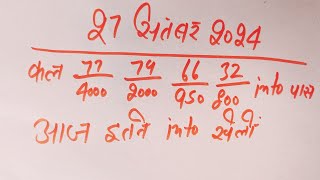 27 सितंबर 2024
कल 77/4000 74/2000 66/950 32/800 into पास
आज इतने into खेलो